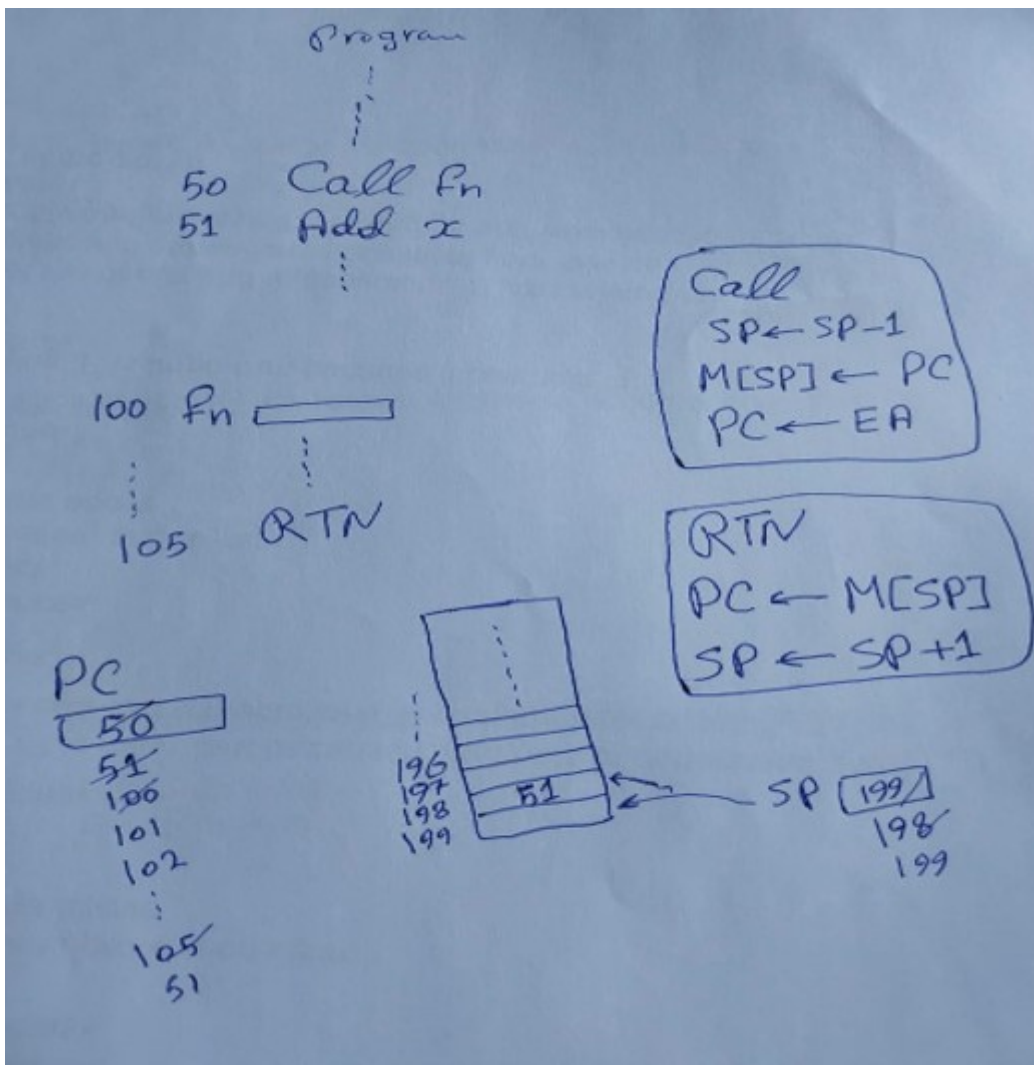 Program
50 Call fn
51 Add x
100 fn
105 RTN
Call
SP ← SP-1
M[SP] ← PC
PC ← EA
RTN
PC ← M[SP]
SP ← SP+1
PC
50
51
100
101
102
105
51
196
197
198
199
51
SP 199
198
199